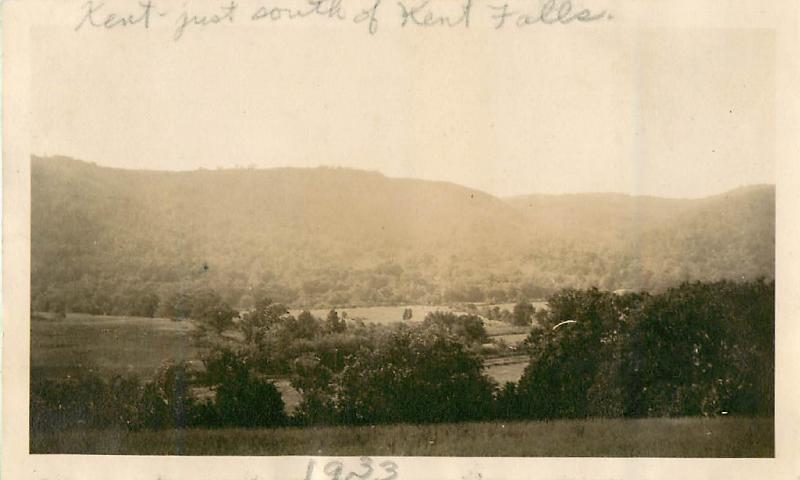 Kent - just south of Kent Falls.
1933